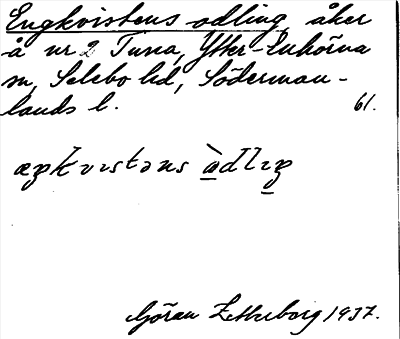 Engkvistens odling, åker
å nr 2 Tuna, Ytter-Enhörna
sn, Selebo hd, Söderman-
lands l. 61.
Göran Zetterborg 1937.